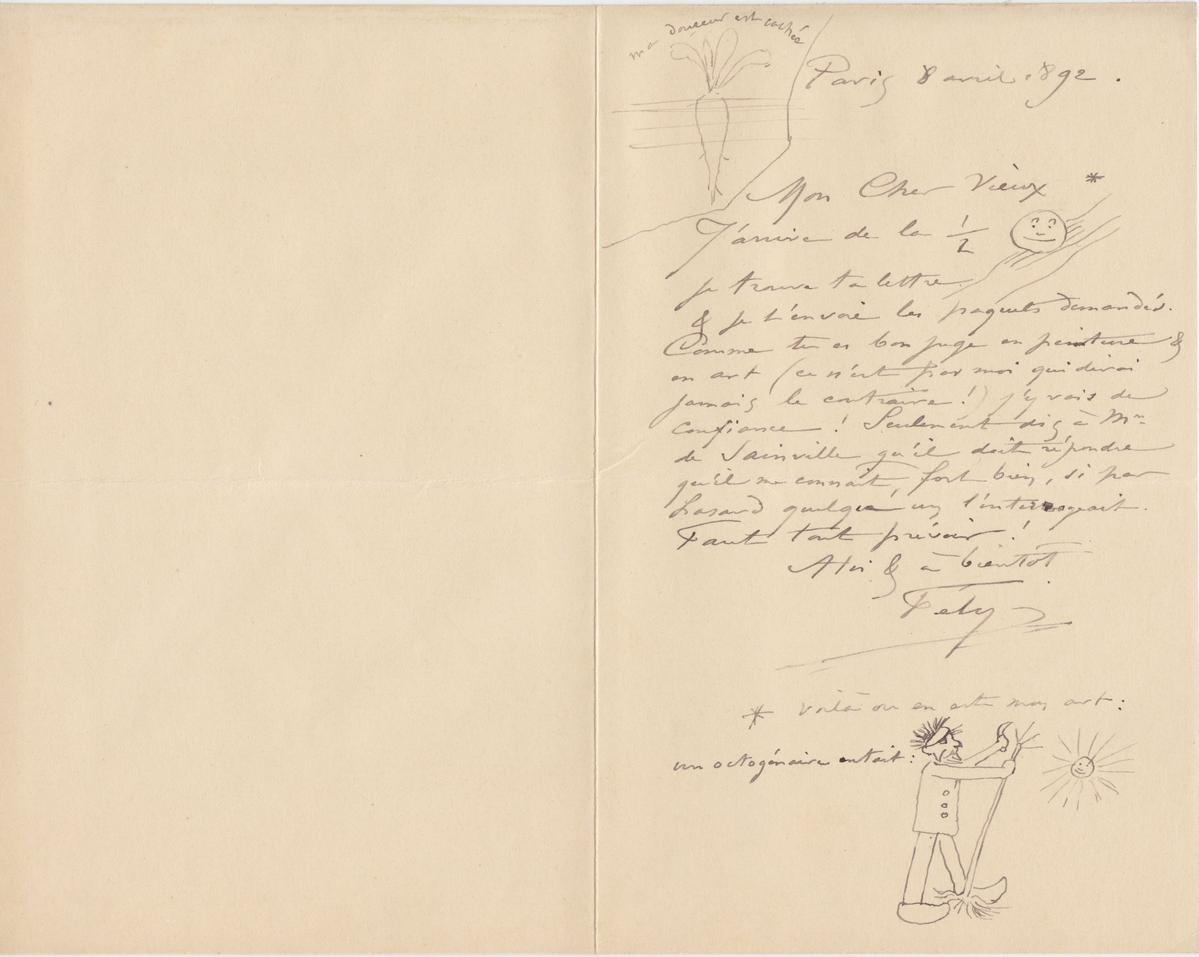 ma douceur est cachée
Paris 8 avril 1892.
Mon Cher Vieux *
J'arrive de la 1/2
je trouve ta lettre
& je t'envoie les paquets demandés.
Comme tu es bon juge en peinture &
en art (ce n'est pas moi qui dirai
jamais le contraire!) j'y vais de
confiance! Seulement dis à Mr
de Sainville qu'il doit répondre
qu'il me connaît, fort bien, si par
hasard quelqu'un l'interrogeait.
Faut tout prévoir!
A toi & à bientôt
* Voilà où en est mon art:
un octogénaire entait: